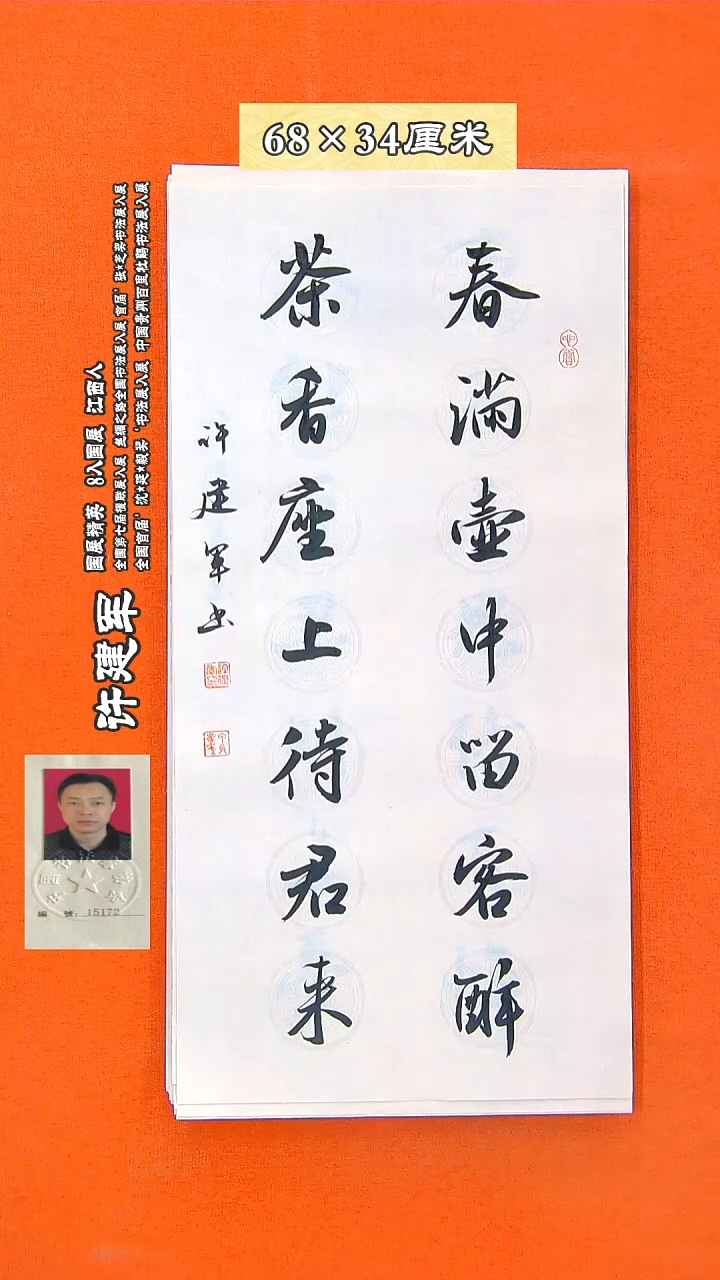 68×34厘米
春满壶中留客醉
茶香座上待君来
许建军书
许建军
国展精英 8入国展 江西人
全国第七届楹联展入展 丝绸之路全国书法展入展 首届‘张*芝奖书法展入展
全国首届‘沈*延*毅奖‘书法展入展 中国贵州百里杜鹃书法展入展
編 號：15172